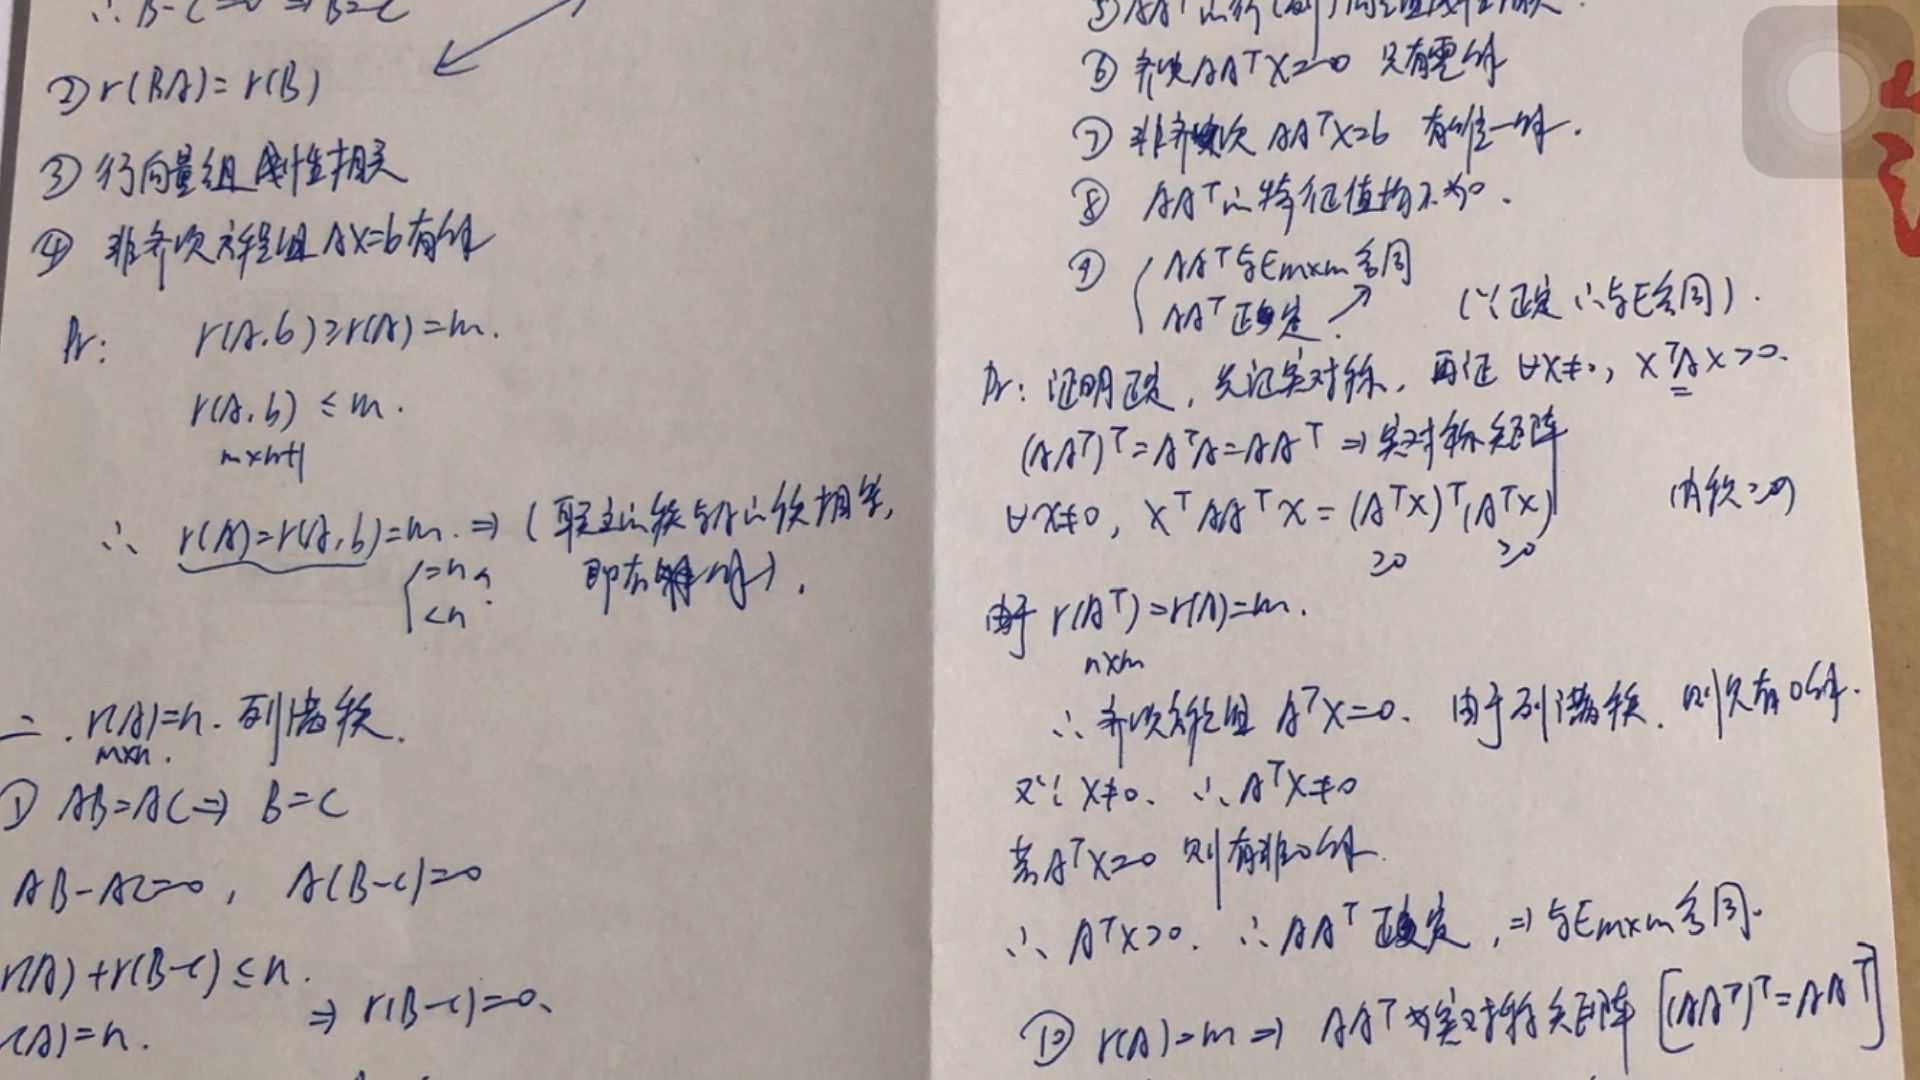 ∴ B-C=0 ⇒ B=C
② r(BA)=r(B)
③ 行向量组线性相关
④ 非齐次方程组AX=b有解
Pr: r(A,b)≥r(A)=m.
r(A,b)≤m.
m×n+1
∴ r(A)=r(A,b)=m. ⇒(联立的秩与A的秩相等,
=n
<n
即有解).
二. r(A)=n. 列满秩.
m×n.
① AB=AC⇒ B=C
AB-AC=0, A(B-C)=0
r(A)+r(B-C)≤n.
⇒ r(B-C)=0.
r(A)=n.
⑤ AA^T的行(列)向量组线性
⑥ 齐次AA^TX=0 只有零解
⑦ 非齐次 AA^TX=b 有唯一解.
⑧ AA^T的特征值均不为0.
⑨ AA^T与Em×m合同
AA^T正定. (∵正定∴与E合同).
Pr: 证明正定, 先证实对称, 再证 ∀X≠0, X^TAX>0.
(AA^T)^T=A^TA=AA^T ⇒ 实对称矩阵
∀X≠0, X^TAA^TX=(A^TX)^T(A^TX) (内积≥0)
≥0 ≥0
由于 r(A^T)=r(A)=m.
n×m
∴ 齐次方程组 A^TX=0. 由于列满秩. 则只有0解.
又∵ X≠0. ∴ A^TX≠0
若A^TX=0 则有非0解.
∴ A^TX>0. ∴ AA^T正定, ⇒ 与Em×m合同.
⑩ r(A)=m ⇒ AA^T为实对称矩阵 [(AA^T)^T=AA^T]